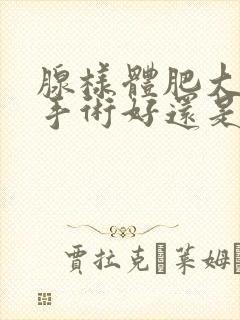 腺樣體肥大
手術好還是
賈拉克 萊姆